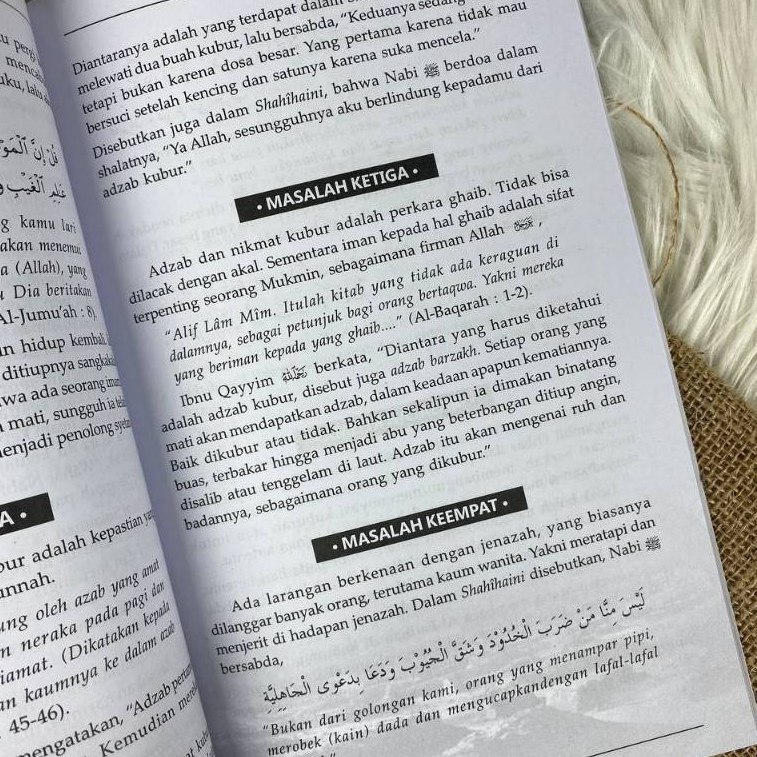 u pergi
mencak
uku, lalu
قُلْ إِنَّ ٱلْمَوْ
عَٰلِمِ ٱلْغَيْبِ وَ
g kamu lari
akan menemu
a (Allah), yang
u Dia beritakan
Al-Jumu'ah : 8).
n hidup kembali
ditiupnya sangkakala
wa ada seorang imam
mati, sungguh ia telah
menjadi penolong
A •
bur adalah kepastian yang
unnah.
ung oleh azab yang amat
n neraka pada pagi dan
iamat. (Dikatakan kepada
an kaumnya ke dalam azab
45-46).
mengatakan, "Adzab
Kemudian
Diantaranya adalah yang terdapat dalam
melewati dua buah kubur, lalu bersabda, "Keduanya sedang
tetapi bukan karena dosa besar. Yang pertama karena tidak mau
bersuci setelah kencing dan satunya karena suka mencela."
Disebutkan juga dalam Shahîhaini, bahwa Nabi ﷺ berdoa dalam
shalatnya, "Ya Allah, sesungguhnya aku berlindung kepadamu dari
adzab kubur."
• MASALAH KETIGA •
Adzab dan nikmat kubur adalah perkara ghaib. Tidak bisa
dilacak dengan akal. Sementara iman kepada hal ghaib adalah sifat
terpenting seorang Mukmin, sebagaimana firman Allah ,
"Alif Lâm Mîm. Itulah kitab yang tidak ada keraguan di
dalamnya, sebagai petunjuk bagi orang bertaqwa. Yakni mereka
yang beriman kepada yang ghaib...." (Al-Baqarah : 1-2).
Ibnu Qayyim berkata, "Diantara yang harus diketahui
adalah adzab kubur, disebut juga adzab barzakh. Setiap orang yang
mati akan mendapatkan adzab, dalam keadaan apapun kematiannya.
Baik dikubur atau tidak. Bahkan sekalipun ia dimakan binatang
buas, terbakar hingga menjadi abu yang beterbangan ditiup angin,
disalib atau tenggelam di laut. Adzab itu akan mengenai ruh dan
badannya, sebagaimana orang yang dikubur."
• MASALAH KEEMPAT •
Ada larangan berkenaan dengan jenazah, yang biasanya
dilanggar banyak orang, terutama kaum wanita. Yakni meratapi dan
menjerit di hadapan jenazah. Dalam Shahîhaini disebutkan, Nabi ﷺ
bersabda,
لَيْسَ مِنَّا مَنْ ضَرَبَ الْخُدُوْدَ وَشَقَّ الْجُيُوْبَ وَدَعَا بِدَعْوَى الْجَاهِلِيَّةِ
"Bukan dari golongan kami, orang yang menampar pipi,
merobek (kain) dada dan mengucapkandengan lafal-lafal